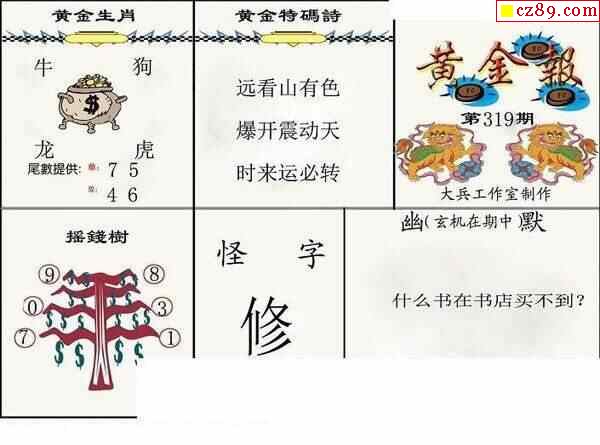 cz89.com
黄金生肖
牛 狗
$
龙 虎
尾數提供: 單: 7 5
雙: 4 6
黄金特碼詩
远看山有色
爆开震动天
时来运必转
黄金報
第319期
大兵工作室制作
摇錢樹
9 8
0 3
7 1
怪 字
修
幽(玄机在期中)默
什么书在书店买不到?